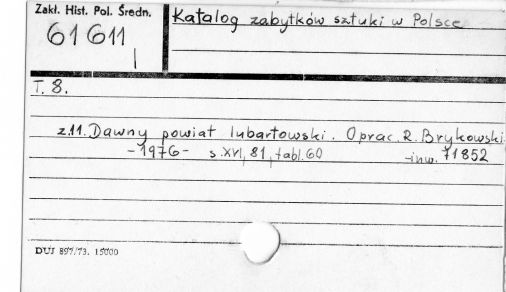 Zakł. Hist. Pol. Średn.
61611
I
Katalog zabytków sztuki w Polsce
T. 8.
z.11. Dawny powiat lubartowski. Oprac. R. Brykowski
-1976- s. XVI, 81, tabl. 60 -inw. 71852
DUJ 897/73. 15000